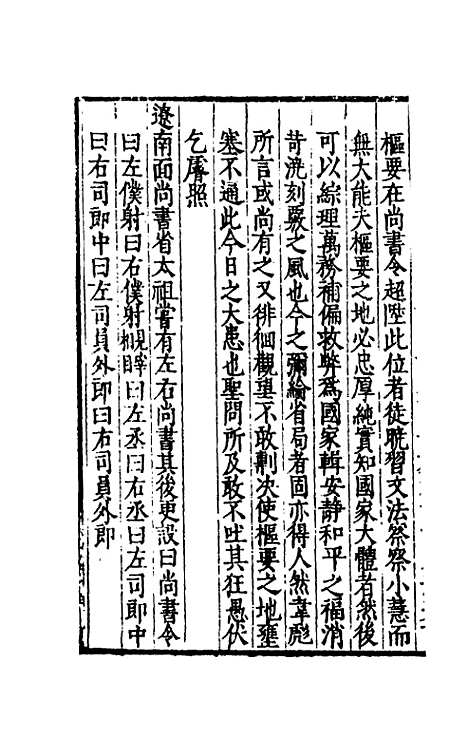 樞要在尚書令超陞此位者徒耽習文法察察小慧而
無大能夫樞要之地必忠厚純實知國家大體者然後
可以綜理萬務補偏救弊爲國家輯安静和平之福消
苛浇刻覈之風也今之彌綸省局者固亦得人然韋彪
所言或尚有之又徘徊觀望不敢剸决使樞要之地壅
塞不通此今日之大患也聖問所及敢不吐其狂愚伏
乞庸照
遼南面尚書省太祖嘗有左右尚書其後吏設曰尚書令
曰左僕射曰右僕射視宰曰左丞曰右丞曰左司郎中
曰右司郎中曰左司員外郎曰右司員外郎